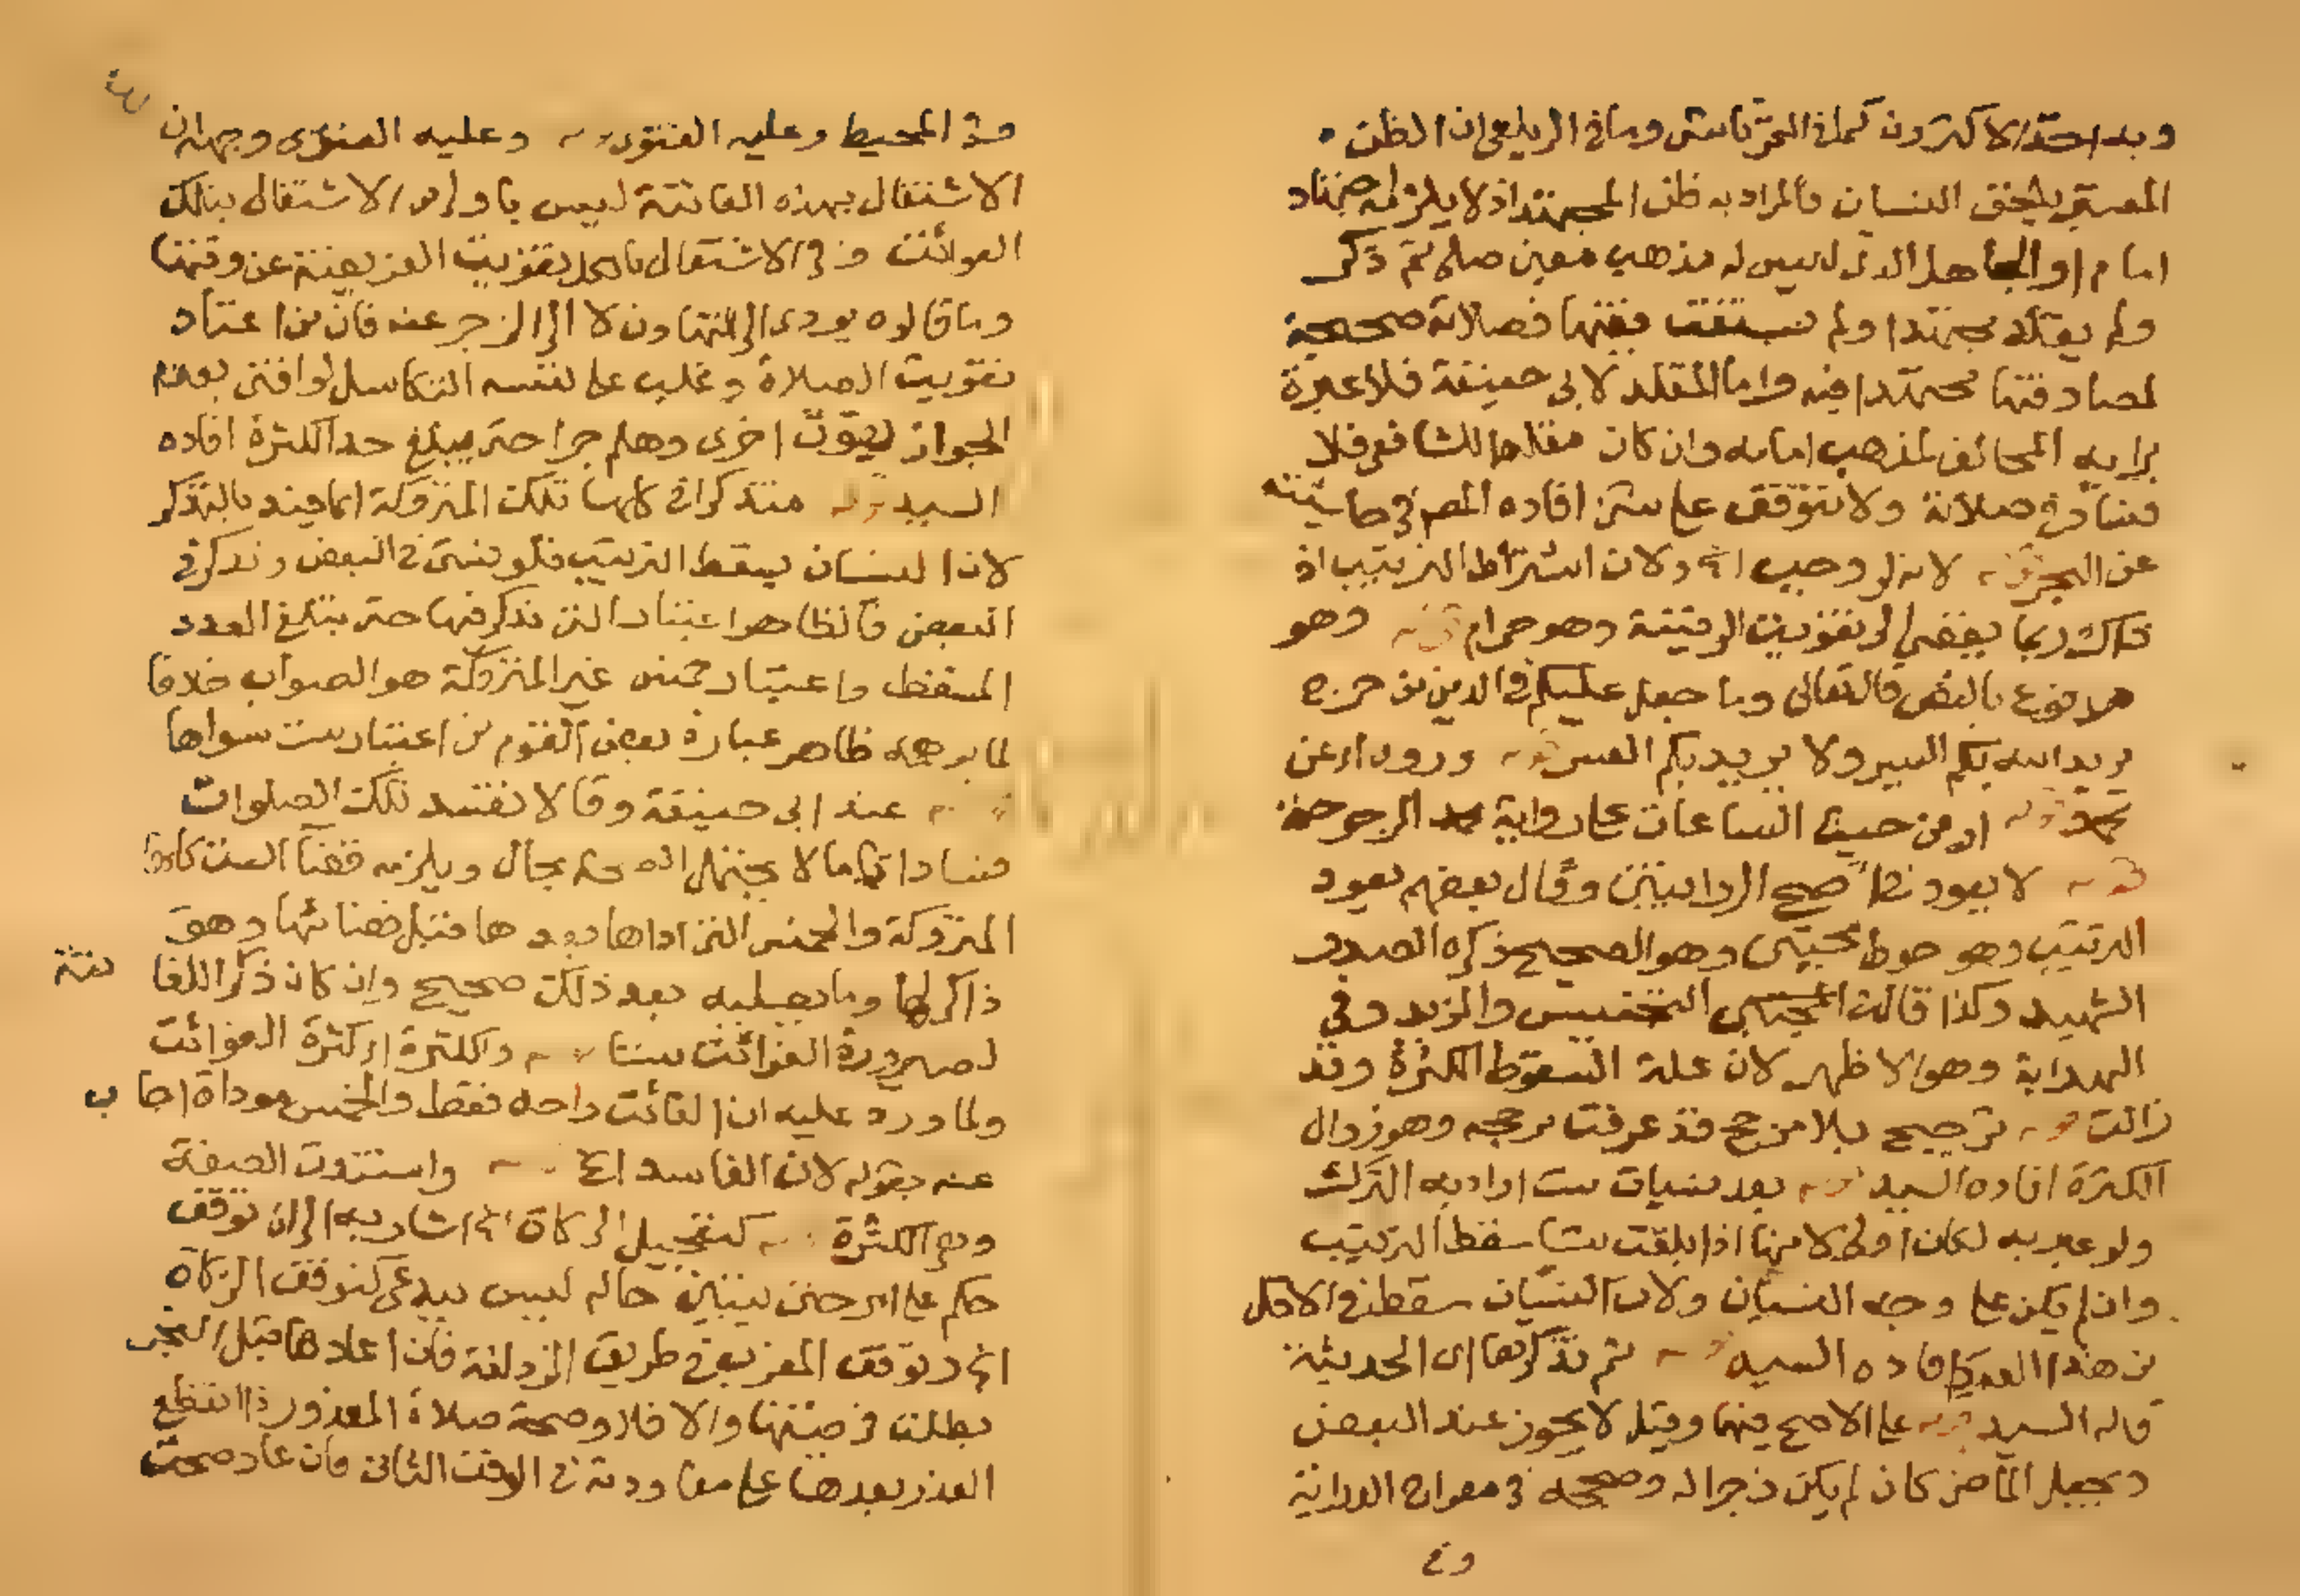 وبه اخذ الاكثرون كما في التمرتاشي وما في الزيلعي ان الظن
المعتبر يلحق النسيان فالمراد به ظن المجتهد اذ لا يلزمه اجتهاد
امام او الجاهل الذي ليس له مذهب معين صلى ثم ذكر
ولم يقلد مجتهدا ولم يستفت فقيها فصلاته صحيحة
لمصادفتها مجتهدا فيه واما المقلد لابي حنيفة فلا عبرة
برايه المخالف لمذهب امامه وان كان مقلدا للشافعي فلا
فساد في صلاته ولا تتوقف على شئ افاده المص في حاشيته
عن البحر قوله لانه لو وجب الخ ولان اشتراط الترتيب اذ
ذاك ربما يفضي الى تفويت الوقتية وهو حرام قوله وهو
مدفوع بالنص قال تعالى وما جعل عليكم في الدين من حرج
يريد الله بكم اليسر ولا يريد بكم العسر قوله وروى اي عن
محمد قوله او من حيث الساعات على رواية الرجوحة
قوله لا يعود اصح الروايتين وقال بعضهم يعود
الترتيب وهو مجتبى وهو الصحيح ذكره الصدر
الشهيد وكذا قال في التجنيس والمزيد وفي
الهداية وهو الاظهر لان علة السقوط الكثرة وقد
زالت قوله ترجيح بلا مرجح قد عرفت مرجحه وهو زوال
الكثرة افاده السيد قوله بعد نسيان ست اراد به الترك
ولو عبر به لكان اولى لانها اذا بلغت ستا سقط الترتيب
وان لم يكن على وجه النسيان ولان النسيان سقط في الاقل
من هذا العدد افاده السيد قوله ثم تذكرها اي الحديثة
قاله السيد قوله على الاصح فيها وقيل لا يجوز عند البعض
ويجعل الماضي كان لم يكن زجرا له وصححه في معراج الدراية
وفي
وفي المحيط وعليه الفتوى قوله وعليه الفتوى وجهه ان
الاشتغال بهذه الفائتة ليس باولى من الاشتغال بتلك
الفوائت وفي الاشتغال بالكل تفويت الفريضة عن وقتها
وما قالوه يودى الى التهاون لا الى الزجر عنه فان من اعتاد
تفويت الصلاة وغلب على نفسه التكاسل لو افتى بعدم
الجواز يفوت اخرى وهلم جرا حتى يبلغ حد الكثرة افاده
السيد قوله متذكرا في كلها تلك المتروكة انما قيد بالتذكر
لان النسيان يسقط الترتيب فلو نسي في البعض وتذكر في
البعض فالظاهر اعتبار التي تذكر فيها حتى يبلغ العدد
المسقط واعتبار خمس غير المتروكة هو الصواب خلافا
لما يوهمه ظاهر عبارة بعض القوم من اعتبار ست سواها
قوله عند ابي حنيفة وقالا تفسد تلك الصلوات
فسادا باتا لا يحتمل الصحة بحال ويلزمه قضاء الست كلها
المتروكة والخمس التي اداها بعدها قبل قضائها وهو
ذاكر لها وما يصليه بعد ذلك صحيح وان كان ذكرا للفا ئتة
لصيرورة الفوائت ستا قوله والكثرة اي كثرة الفوائت
ولما ورد عليه ان الفائت واحدة فقط والخمس موداة اجا ب
عنه بقوله لان الفاسد الخ قوله واستندت الصفة
وهي الكثرة قوله كتعجيل الزكاة الخ اشار به الى ان توقف
حكم على امر حتى يتبين حاله ليس ببدعى كتوقف الزكاة
الخ وتوقف المغرب في طريق المزدلفة فان اعادها قبل الفجر
بطلت فرضيتها والا فلا وصحة صلاة المعذور اذا انقطع
العذر بعدها على معاودته في الوقت الثاني فان عاد صحت